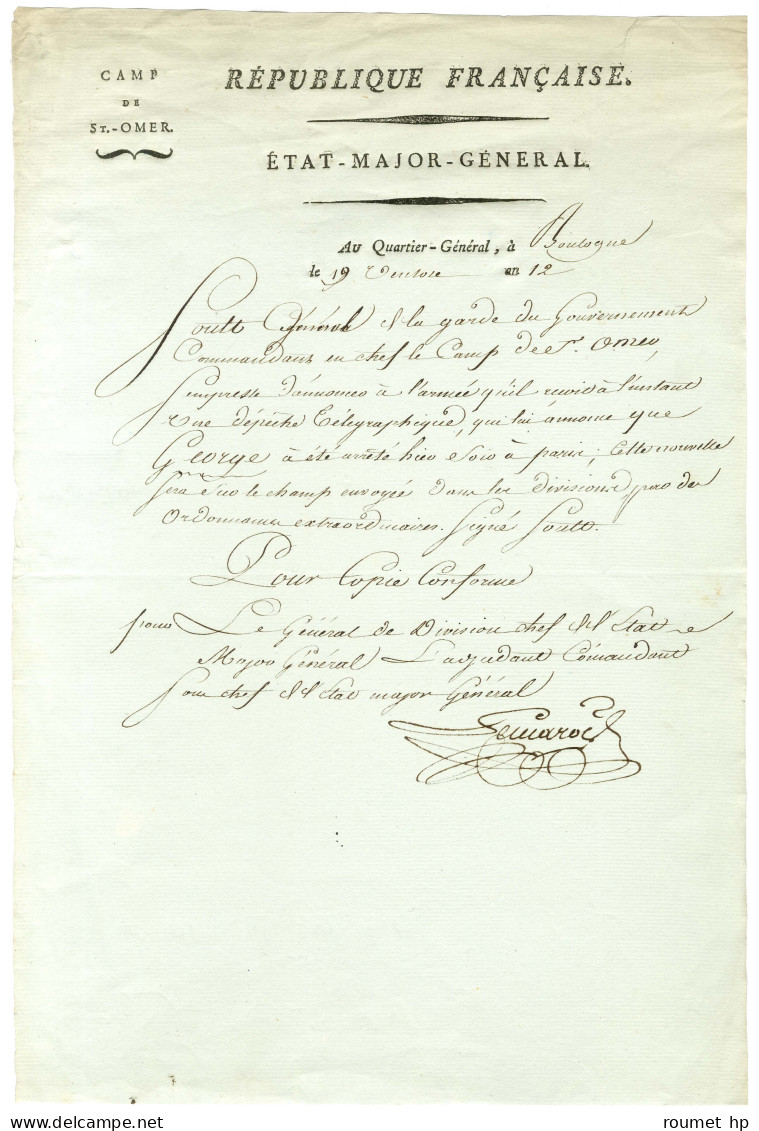 CAMP
DE
ST.-OMER.
RÉPUBLIQUE FRANÇAISE.
ÉTAT-MAJOR-GÉNÉRAL.
Au Quartier-Général, à Boulogne
le 19 Ventose an 12
Soult Général de la garde du Gouvernement
Commandant en chef le Camp de St. Omer,
s'empresse d'annoncer à l'armée qu'il reçoit à l'instant
une dépêche Télégraphique, qui lui annonce que
George à été arrêté hier soir à paris; Cette nouvelle
sera sur le champ envoyée dans les divisions, par des
Ordonnances extraordinaires. Signé Soult.
Pour Copie Conforme
pour Le Général de Division chef de l'Etat
Major Général L'adjudant Commandant
Sous chef de l'Etat major Général
delcampe.net
roumet hp